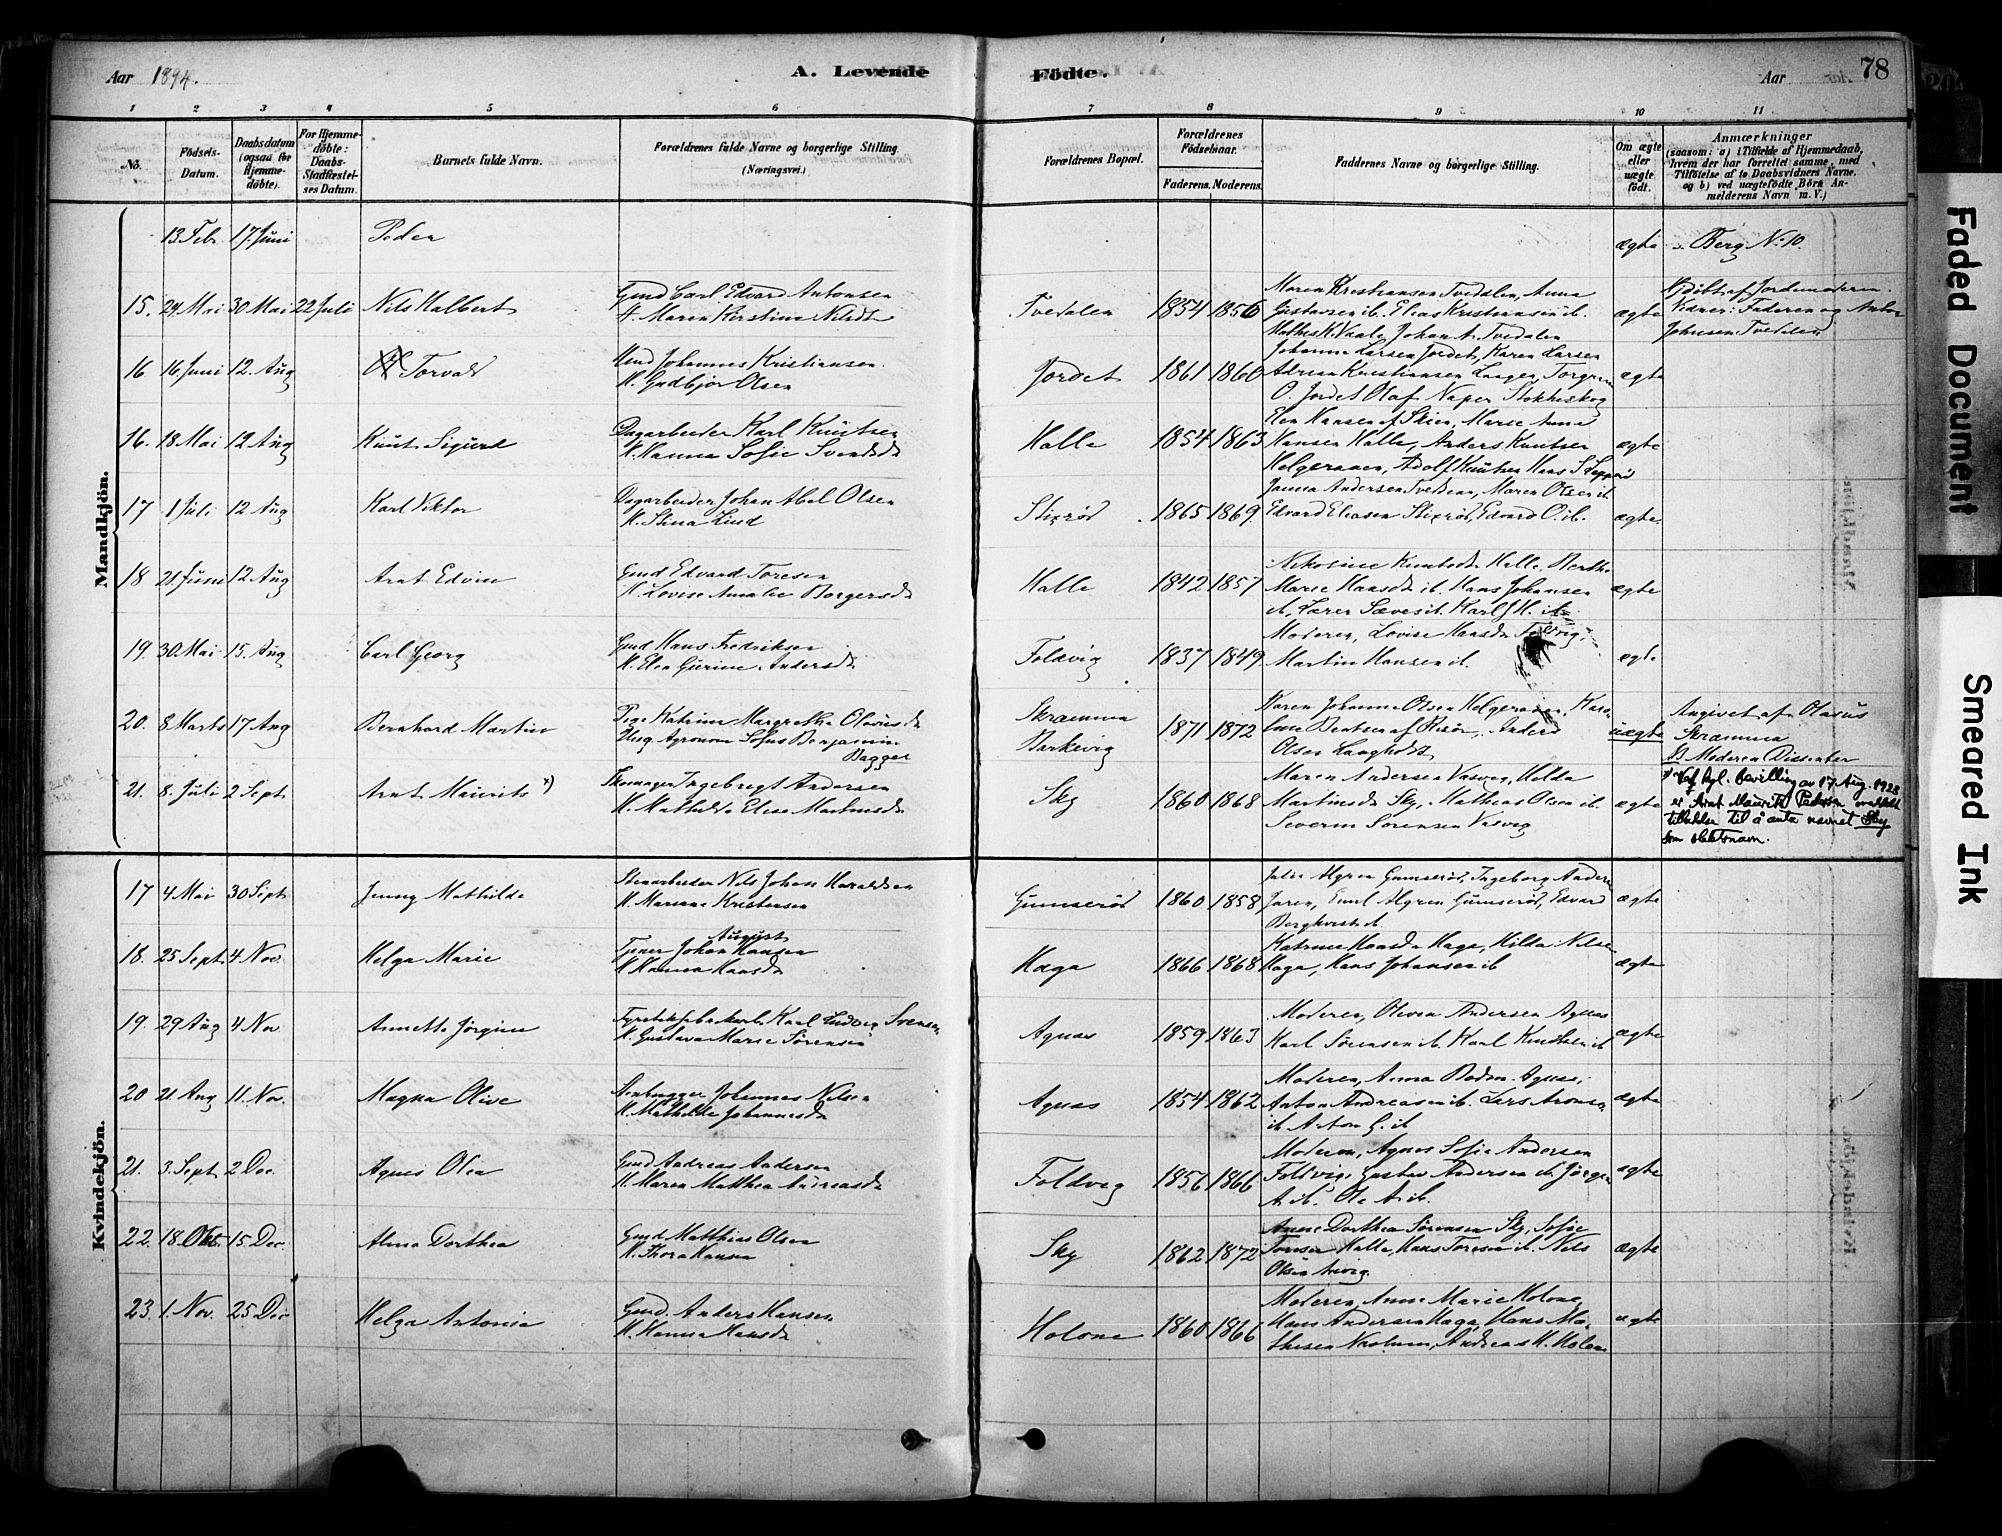 Aar 1894.
A. Levende Födte.
Aar
78
1 2 3 4 5 6 7 8 9 10 11
No.
Födsels-Datum.
Daabsdatum (ogsaa for Hjemme-döbte).
For Hjemme-döbte: Daabs-Stadfæstel-ses Datum.
Barnets fulde Navn.
Forældrenes fulde Navne og borgerlige Stilling. (Næringsvei.)
Forældrenes Bopæl.
Forældrenes Födselsaar.
Faderens. Moderens.
Faddernes Navne og borgerlige Stilling.
Om ægte eller uægte födt.
Anmærkninger
(saasom: a) i Tilfælde af Hjemmedaab,
hvem der har forrettet samme, med
Tilföielse af to Daabsvidners Navne.
og b) ved uægtefödte Börn An-
melderens Navn m. V.)
Mandkjön.
13 Febr 17 Juni Peder ægte Berg No 10
15. 29 Mai 30 Mai 22 Juli Nils Halbert
Gmd Carl Edvard Antonsen
H. Maren Kirstine Nilsdt
Tvedalen 1854 1856
Maren Kristiansen Tvedalen, Anna
Gustavsen ib. Elias Kristiansen ib.
Mathis K. Vaale, Johan A. Tvedalen
ægte
Hjdöbt af Jordemoderen.
Vidner: Faderen og Anton
Johnsen Tvedalen
16 16 Juni 12. Aug Torvald
Gmd Johannes Kristiansen
H. Gudbjör Olsen
Jordet 1861 1860
Johanne Larsen Jordet, Karen Larsen
Adrian Kristiansen Langen, Torgrim
O. Jordet Olaf Naper Stokkeskog
ægte
16. 18 Mai 12 Aug Knut Sigurd
Dagarbeider Karl Knutsen
H. Hanna Sofie Svendsdt
Halle 1854 1863
Elen Hansen af Skien, Marie Anna
Hansen Halle, Anders Knutsen
Helgeraaen, Adolf Knutsen Hans S.
ægte
17 1 Juli 12 Aug Karl Viktor
Dagarbeider Johan Abel Olsen
H. Stina Lind
Stixröd 1865 1869.
Janna Andersen Tvedene, Maren Olsen ib.
Edvard Eliasen Stixröd, Edvard O. ib.
ægte.
18 21. Juni 12 Aug Arnt Edvin
Gmd Edvard Toresen
H. Lovise Amalie Borgersdt
Halle 1842 1857
Nikoline Knutsdt Halle, Berthe
Marie Hansdt ib. Hans Johansen
ib, Lærer Sæves ib. Karl H. ib
ægte
19. 30 Mai 15. Aug Carl Georg
Gmd Hans Fredriksen
H. Elen Gurine Andersdt
Foldvig 1837 1849
Moderen, Lovise Hansdt Foldvig,
Martin Hansen ib.
ægte
20. 8 Marts 17 Aug Bernhard Martin
Pige Katrine Margrethe Olavusdt
Ung. Agronom Sofus Benjamin
Bagger
Skramma
Barkevig
1871 1872
Karen Johanne Olsen Helgeraaen, Karo-
line Bentsen af Risör, Anders
Olsen Langholdt
uægte
Angivet af Olavus
Skramma
Moderen Dissenter
21. 8. Juli 2 Sept. Arnt Maurits x)
Skomager Ingebregt Andersen
H. Mathilde Elise Martinsdt
Sky 1860 1868
Maren Andersen Vasveg, Hilda
Martinsdt Sky, Mathias Olsen ib.
Severin Sörensen Vasvig
ægte
x) Ved kgl. bevilling av 17 Aug. 1928
er Arnt Maurits Pedersen meddelt
tilladelse til å anta navnet Sky
som slektsnavn.
Kvindekjön.
17 4 Mai 30 Sept Jenny Mathilde
Stenarbeider Nils Johan Haraldsen
H. Mariane Kristensen
Gumseröd 1860 1858
Julie Algren Gumseröd, Ingeborg Anders
Jaren, Emil Algren Gumseröd, Edvard
Bergkvist ib.
ægte
18. 25 Sept 4 Nov. Helga Marie
August
Tjener Johan Hansen
H. Hanna Hansdt
Haga 1866 1868
Katrine Hansdt Haga, Hilda Nilsen
Haga, Hans Johansen ib
ægte
19. 29 Aug 4 Nov Annette Jörgine
Karl Ludvig Svensen
H. Gustava Marie Sörensen
Agnas 1859 1863
Moderen, Olevia Andersen Agnas
Karl Sörensen ib. Karl Knudsen ib
ægte
20 21 Aug 11. Nov. Magna Olive
Stenhugger Johannes Nilsen
H. Mathilde Johannesdt
Agnas 1854 1862
Moderen, Anna Agnas,
Anton Andreasen ib. Lars Aronsen
ib. Anton G. ib
ægte
21. 3. Sept. 2 Dec. Agnes Olea
Gmd Andreas Andersen
H. Maren Matthea Andreasdt
Foldvig 1856 1866
Moderen, Agnes Sofie Andersen
Foldvig, Gustav Andersen ib Jörgen
A. ib. Ole A. ib.
ægte
22. 18. Okt. 15 Dec. Alma Dorthea
Gmd Matthias Olsen
H. Thora Hansen
Sky 1862 1872
Anne Dorthea Sörensen Sky, Sofie
Toresen Halle, Hans Toresen ib. Nils
Olsen
ægte
23. 1. Nov. 25 Dec Helga Antonia
Gmd. Anders Hansen
H. Hanna Hansdt
Holone 1860 1866
Moderen, Anne Marie Holone,
Hans Andersen Haga, Hans Ma-
thisen, Andreas H. Holone
ægte
Faded Document
Smeared Ink